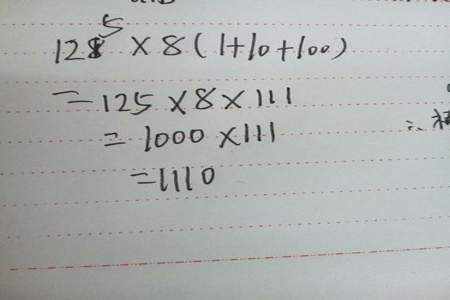 125 × 8 (1+10+100)
= 125 × 8 × 111
= 1000 × 111
= 1110
∴